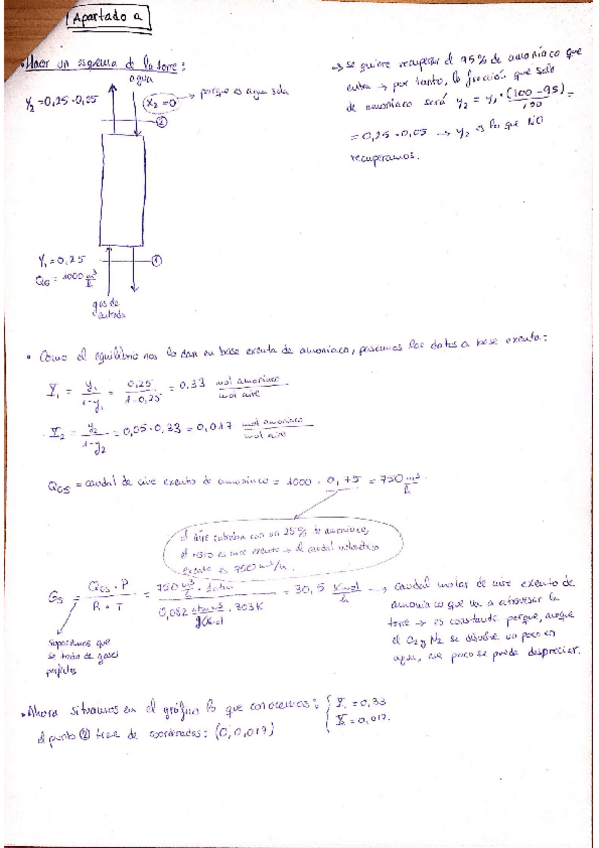 Apartado a
• Hacer un esquema de la torre:
agua
Y₂ = 0,25 · 0,05
X₂ = 0
→ porque es agua sola
②
Y₁ = 0,25
Q_G = 1000 m³/h
①
gas de
entrada
→ se quiere recuperar el 95% de amoníaco que
entra → por tanto, la fracción que sale
de amoníaco será y₂ = y₁ · (100 - 95)/100 =
= 0,25 · 0,05 → y₂ es lo que NO
recuperamos.
• Como el equilibrio nos lo dan en base exenta de amoníaco, pasamos los datos a base exenta:
Y₁ = y₁/1-y₁ = 0,25/1-0,25 = 0,33 mol amoníaco/mol aire
Y₂ = y₂/1-y₂ = 0,05 · 0,33 = 0,017 mol amoníaco/mol aire
Q_GS = caudal de aire exento de amoníaco = 1000 · 0,75 = 750 m³/h
el aire entraba con un 25% de amoníaco,
el resto es aire exento → el caudal volumétrico
exento es 750 m³/h.
G_S = Q_GS · P/R · T = 750 m³/h · 1 atm/0,082 · 303K = 30,5 Kmol/h
→ caudal molar de aire exento de
amoníaco que va a atravesar la
torre → es constante porque, aunque
el O₂ y N₂ se disuelve un poco en
agua, ese poco se puede despreciar.
suponemos que
se trata de gases
perfectos
• Ahora situamos en el gráfico lo que conocemos: { Y₁ = 0,33
Y₂ = 0,017.
el punto ② tiene de coordenadas: (0, 0,017)